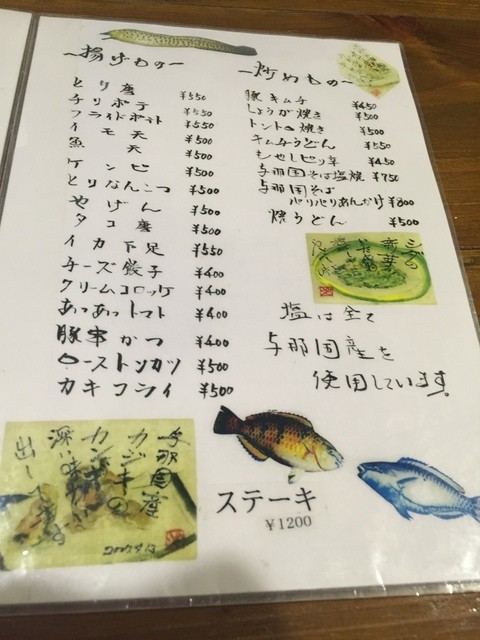 〜揚げもの〜
とり唐 ¥550
チリポテ ¥550
フライドポテト ¥550
イモ天 ¥500
魚天 ¥500
ケンピ ¥500
とりなんこつ ¥500
やげん ¥500
タコ唐 ¥500
イカ下足 ¥550
チーズ餃子 ¥400
クリームコロッケ ¥400
あつあつトマト ¥400
豚串かつ ¥400
ローストンカツ ¥500
カキフライ ¥500
〜炒めもの〜
豚キムチ ¥450
しょうが焼き ¥500
トントロ焼き ¥500
キムチうどん ¥550
もやしピリ辛 ¥450
与那国そば塩焼 ¥750
与那国そば
パリパリあんかけ ¥800
焼うどん ¥500
塩は全て
与那国産を
使用しています。
与那国産
カジキの
カンピ
深い味
出して
2007.9.12
ステーキ
¥1200